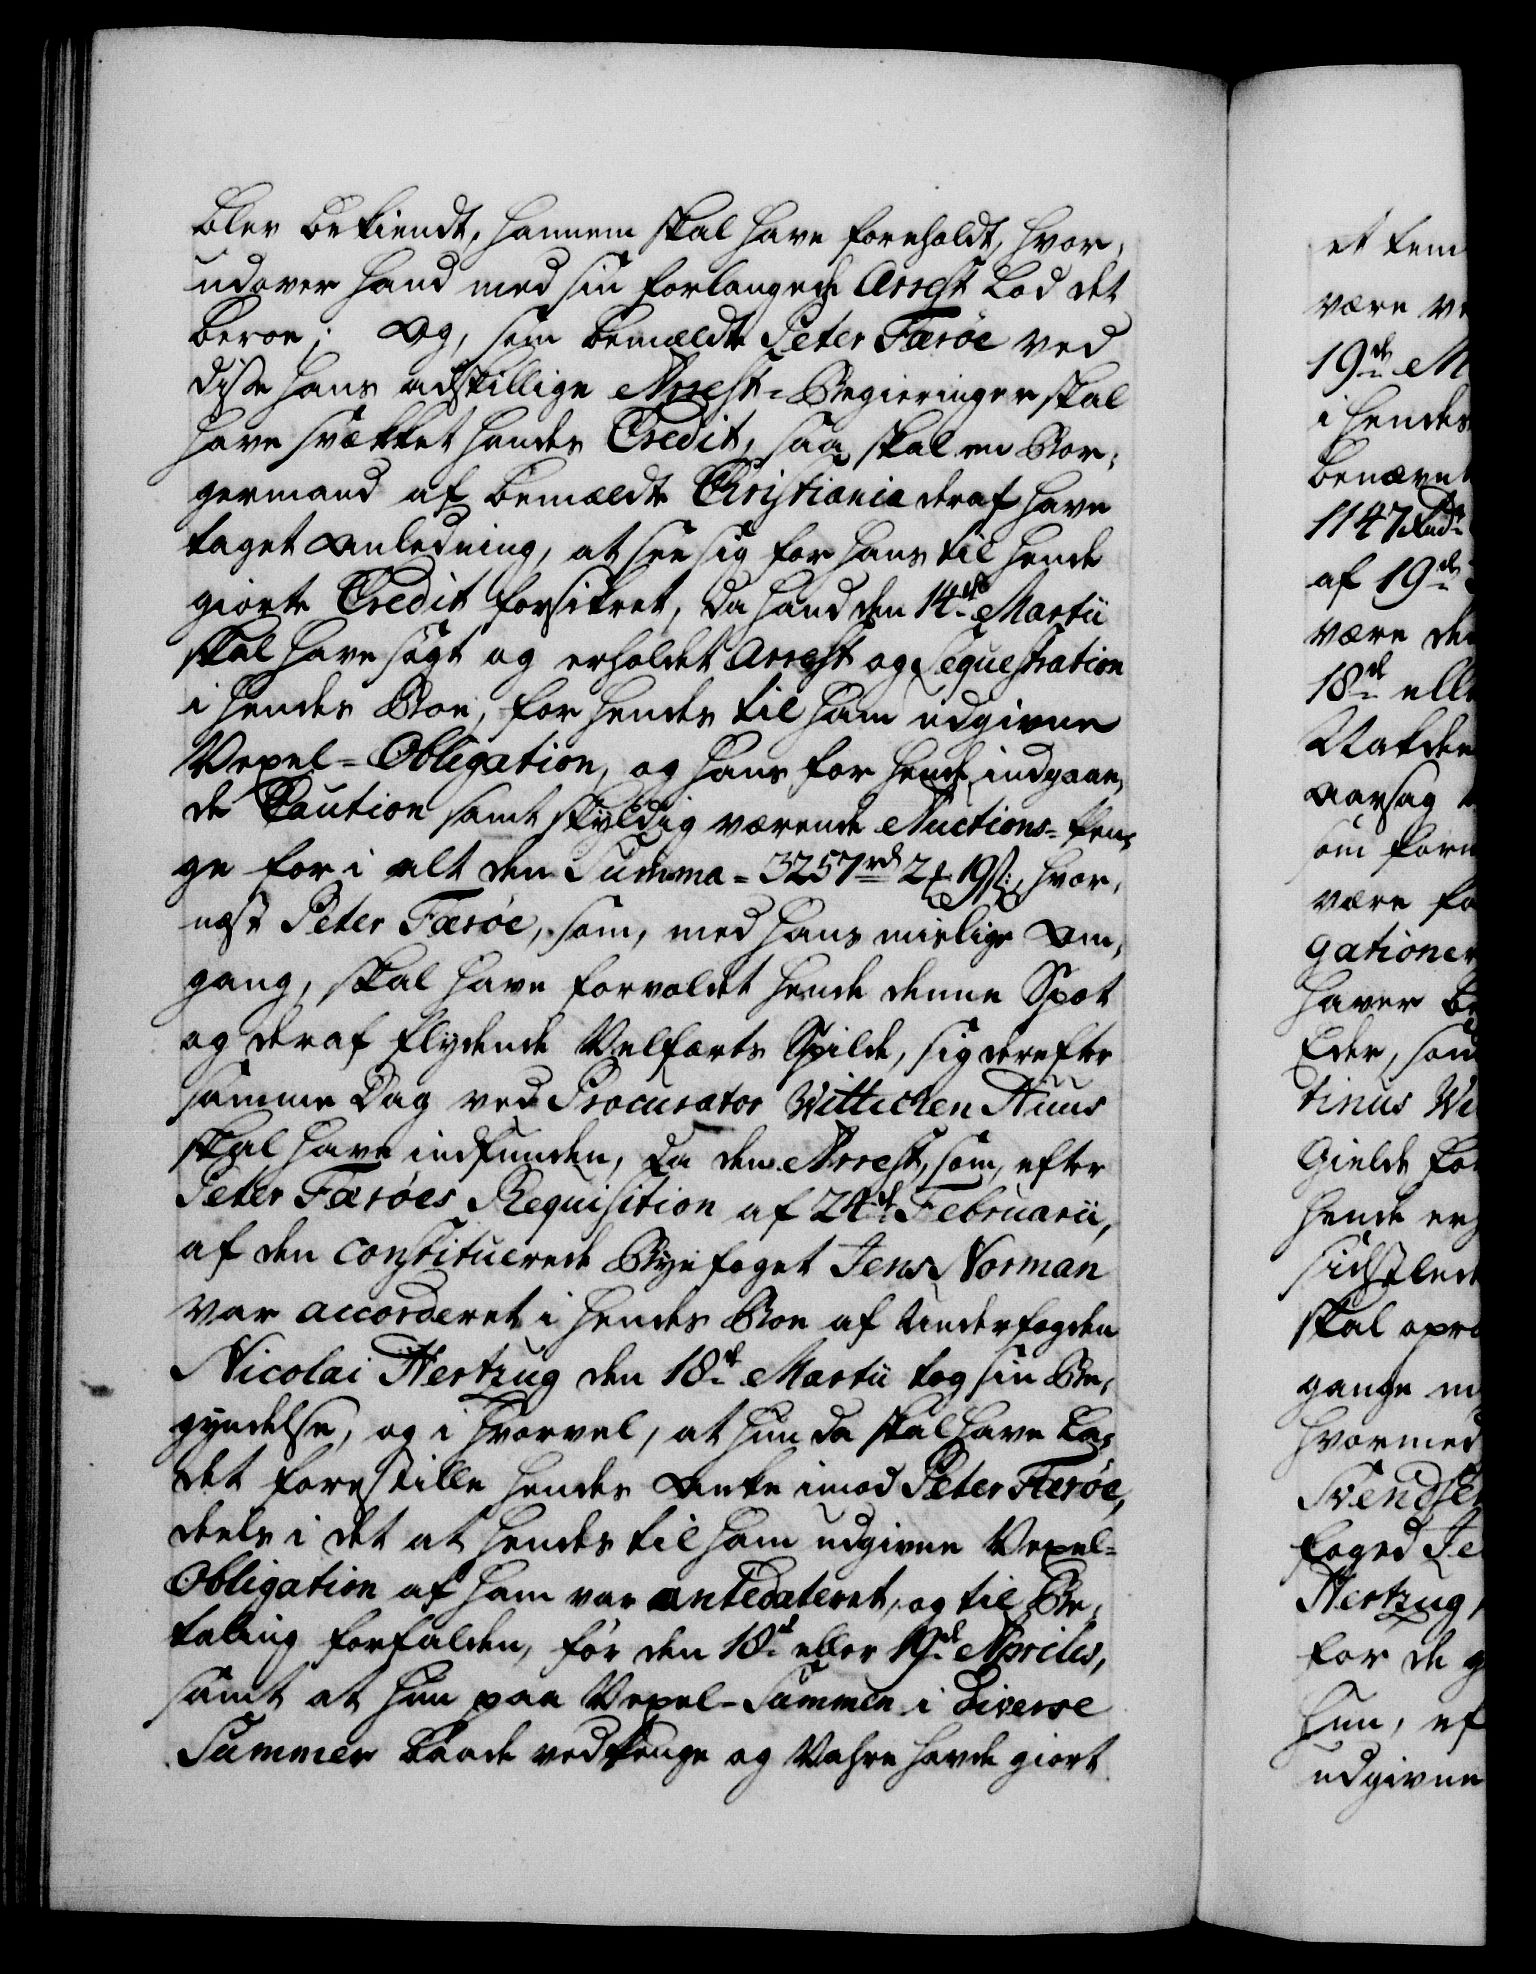 blev bekiendt, hannem skal have foreholdt, hvor,
udover hand med sin forlangede Arrest lod det
beroe; Og, som bemældte Peter Færöe ved
disse hans adskillige Arrest-Begieringer skal
have svækket hendes Credit, saa skal en Bor,
germand af bemældte Christiania deraf have
taget Anledning, at see sig for hans til hende
giorte Credit forsikret, da hand den 14de Martii
skal have søgt og erholdet Arrest og Sequestration
i hendes Boe, for hendes til ham udgivne
Vexel-Obligation, og hans for hende indgaaen,
de Caution samt skyldig værende Auctions-Pen,
ge for i alt den Summa = 3257rd 2 19s:, hvor,
næst Peter Færöe, som, med hans mislige Om,
gang, skal have forvoldet hende denne Spot
og deraf flydende Velfærts Spilde, sig derefter
samme Dag ved Procurator Wittichen Huus
skal have indfunden, da den Arrest, som, efter
Peter Færöes Requisition af 24de Februarii,
af den constituerede Byefoget Jens Norman
var accorderet i hendes Boe af Underfogden
Nicolai Hertzug den 18de Martii tog sin Be,
gyndelse, og i hvorvel, at hun da skal have la,
det forestille hendes Anke imod Peter Færöe,
deels i det at hendes til ham udgivne Vexel-
Obligation af ham var antedateret, og til Be,
taling forfalden, før den 18de eller 19de Aprilis,
samt at hun paa Vexel-Summen i diverse
Summer baade ved Penge og Vahre havde giort
et tem
være
19de M
i hendes
benævnt
1147 Rd
af 19de
være de
18de elle
Aarsag
som for
være fo
gationer
haver be
Eder, som
tinus Wi
Gields
hende
sidstled
skal
gange
hvormed
Svendse
foged Je
Hertzug
for de
hun, ef
udgivne